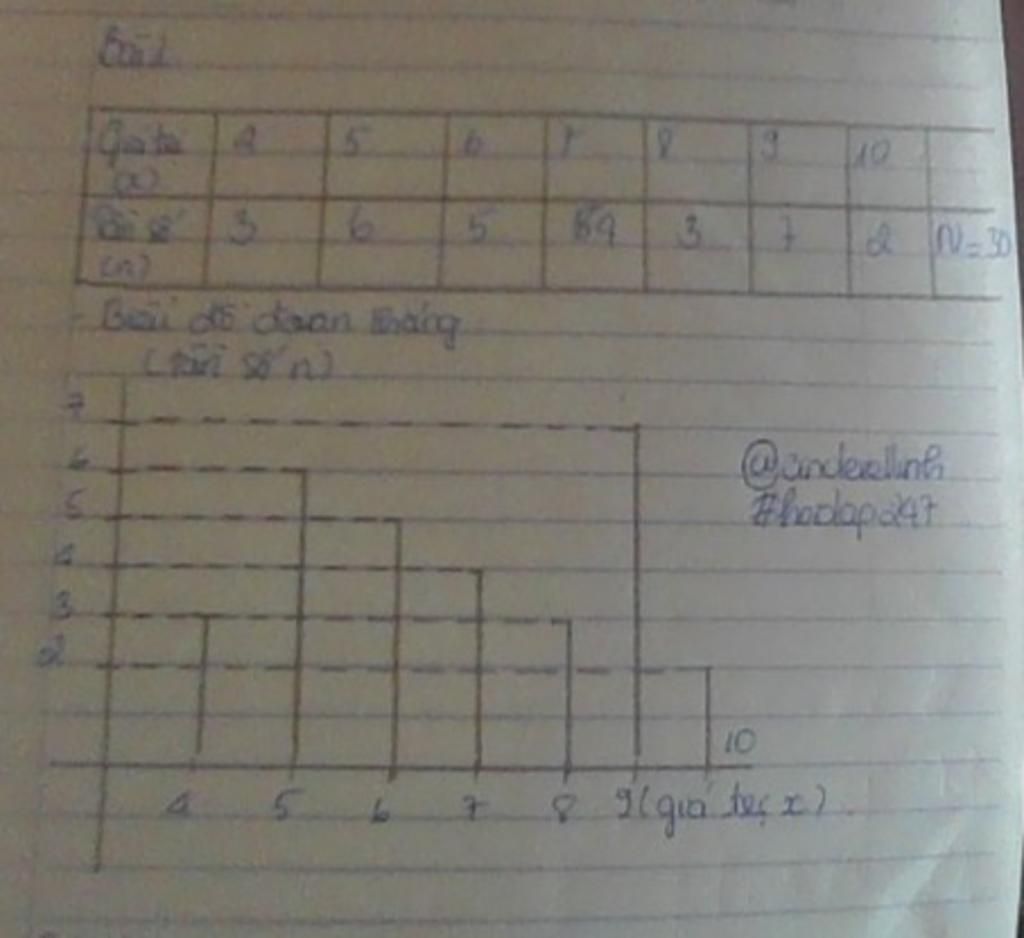 Bài 1
Giá trị (x) 4 5 6 7 8 9 10
Tần số (n) 3 6 5 4 3 7 2 N=30
- Biểu đồ đoạn thẳng
(tần số n)
7
6
5
4
3
2
@cinderellinh
#hoidap247
10
4 5 6 7 8 9 (giá trị x).